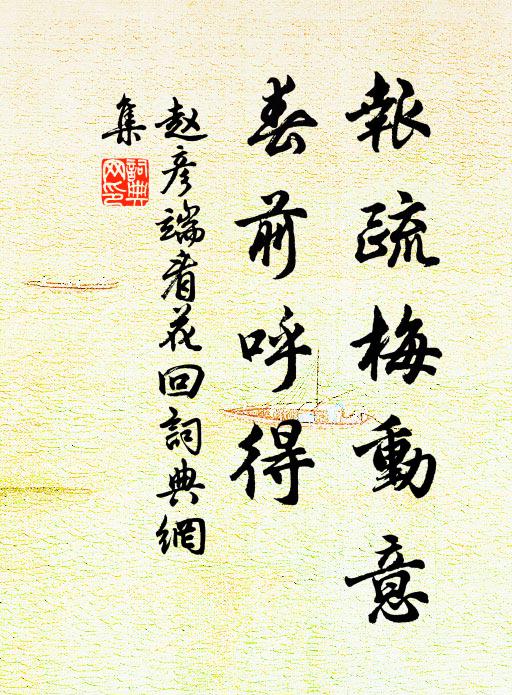 報疏梅動意
春前呼得
赵彦端看花回詞典網
集
詞典网印